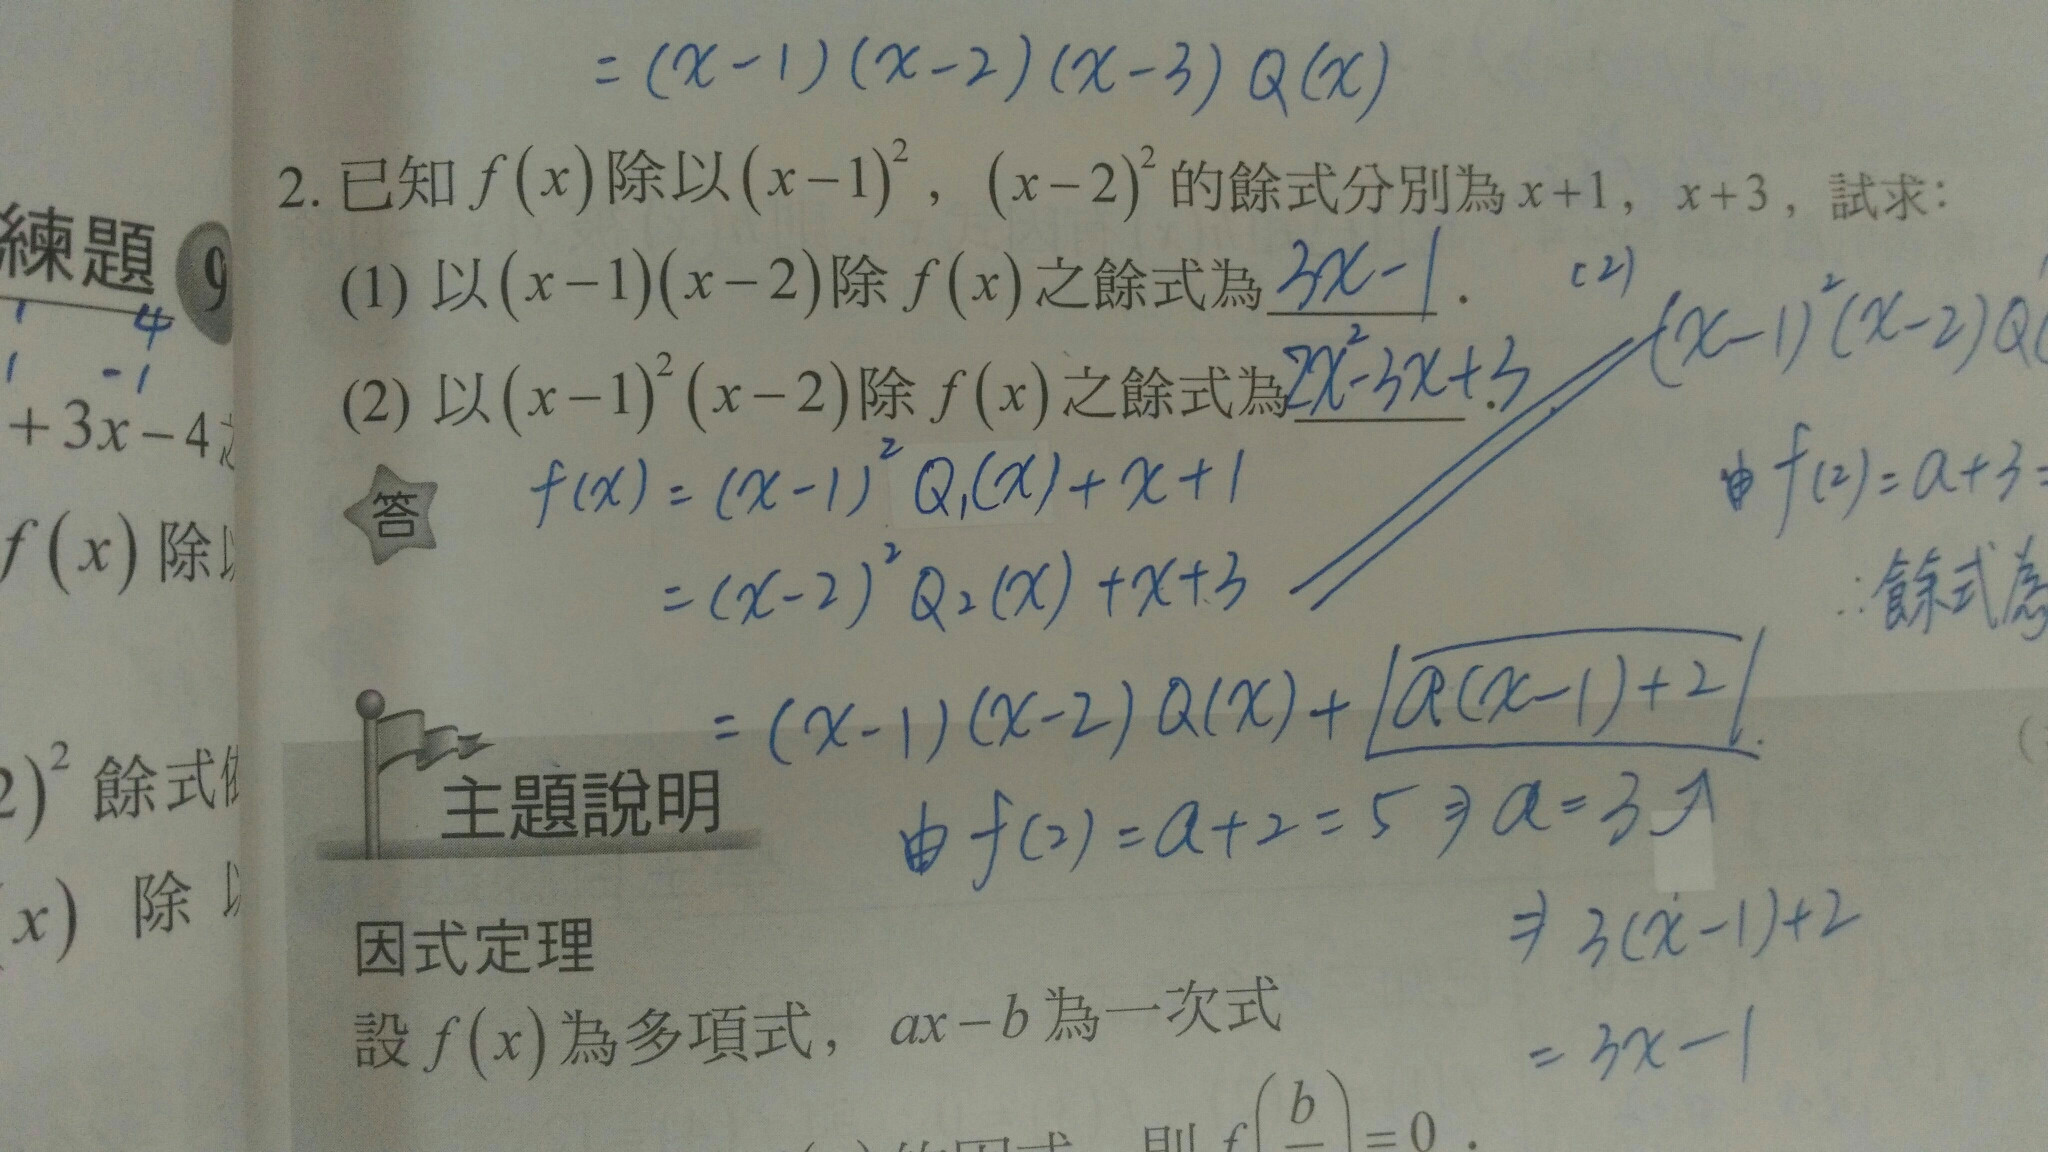 = (x-1)(x-2)(x-3) Q(x)
2. 已知 f(x) 除以 (x-1)²，(x-2)² 的餘式分別為 x+1，x+3，試求：
(1) 以 (x-1)(x-2) 除 f(x) 之餘式為 3x-1 .
(2) 以 (x-1)²(x-2) 除 f(x) 之餘式為 2x²-3x+3 .
f(x) = (x-1)² Q₁(x) + x + 1
= (x-2)² Q₂(x) + x+3
= (x-1)(x-2) Q(x) + a(x-1)+2
由 f(2) = a+2 = 5 ⇒ a = 3
⇒ 3(x-1)+2
= 3x-1
(2)
(x-1)²(x-2)Q(
由 f(2) = a+3 =
∴餘式為
答
主題說明
因式定理
設 f(x) 為多項式，ax-b 為一次式
則 f(b = 0 .
練題 9
1 4
1 -1
+3x-4
f(x) 除
2)² 餘式
x) 除